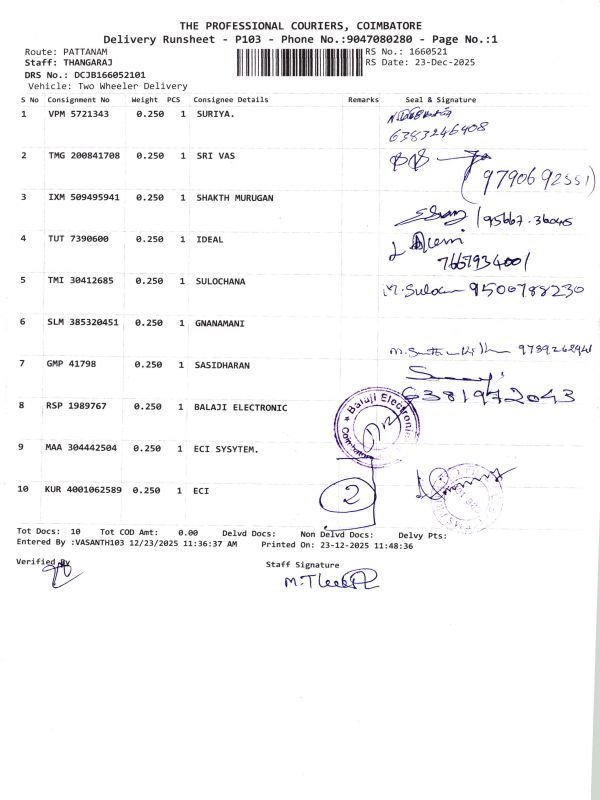 THE PROFESSIONAL COURIERS, COIMBATORE
Delivery Runsheet - P103 - Phone No.:9047080280 - Page No.:1
Route: PATTANAM RS No.: 1660521
Staff: THANGARAJ RS Date: 23-Dec-2025
DRS No.: DCJB166052101
Vehicle: Two Wheeler Delivery
S No Consignment No Weight PCS Consignee Details Remarks Seal & Signature
1 VPM 5721343 0.250 1 SURIYA.
6383246408
2 TMG 200841708 0.250 1 SRI VAS
(9790692551)
3 IXM 509495941 0.250 1 SHAKTH MURUGAN
95667.36045
4 TUT 7390600 0.250 1 IDEAL
7667934001
5 TMI 30412685 0.250 1 SULOCHANA
M. Suloc 9500788230
6 SLM 385320451 0.250 1 GNANAMANI
9789262941
7 GMP 41798 0.250 1 SASIDHARAN
6381972043
8 RSP 1989767 0.250 1 BALAJI ELECTRONIC
Balaji Electronic
9 MAA 304442504 0.250 1 ECI SYSYTEM.
10 KUR 4001062589 0.250 1 ECI
2
Tot Docs: 10 Tot COD Amt: 0.00 Delvd Docs: Non Delvd Docs: Delvy Pts:
Entered By :VASANTH103 12/23/2025 11:36:37 AM Printed On: 23-12-2025 11:48:36
Verified By Staff Signature